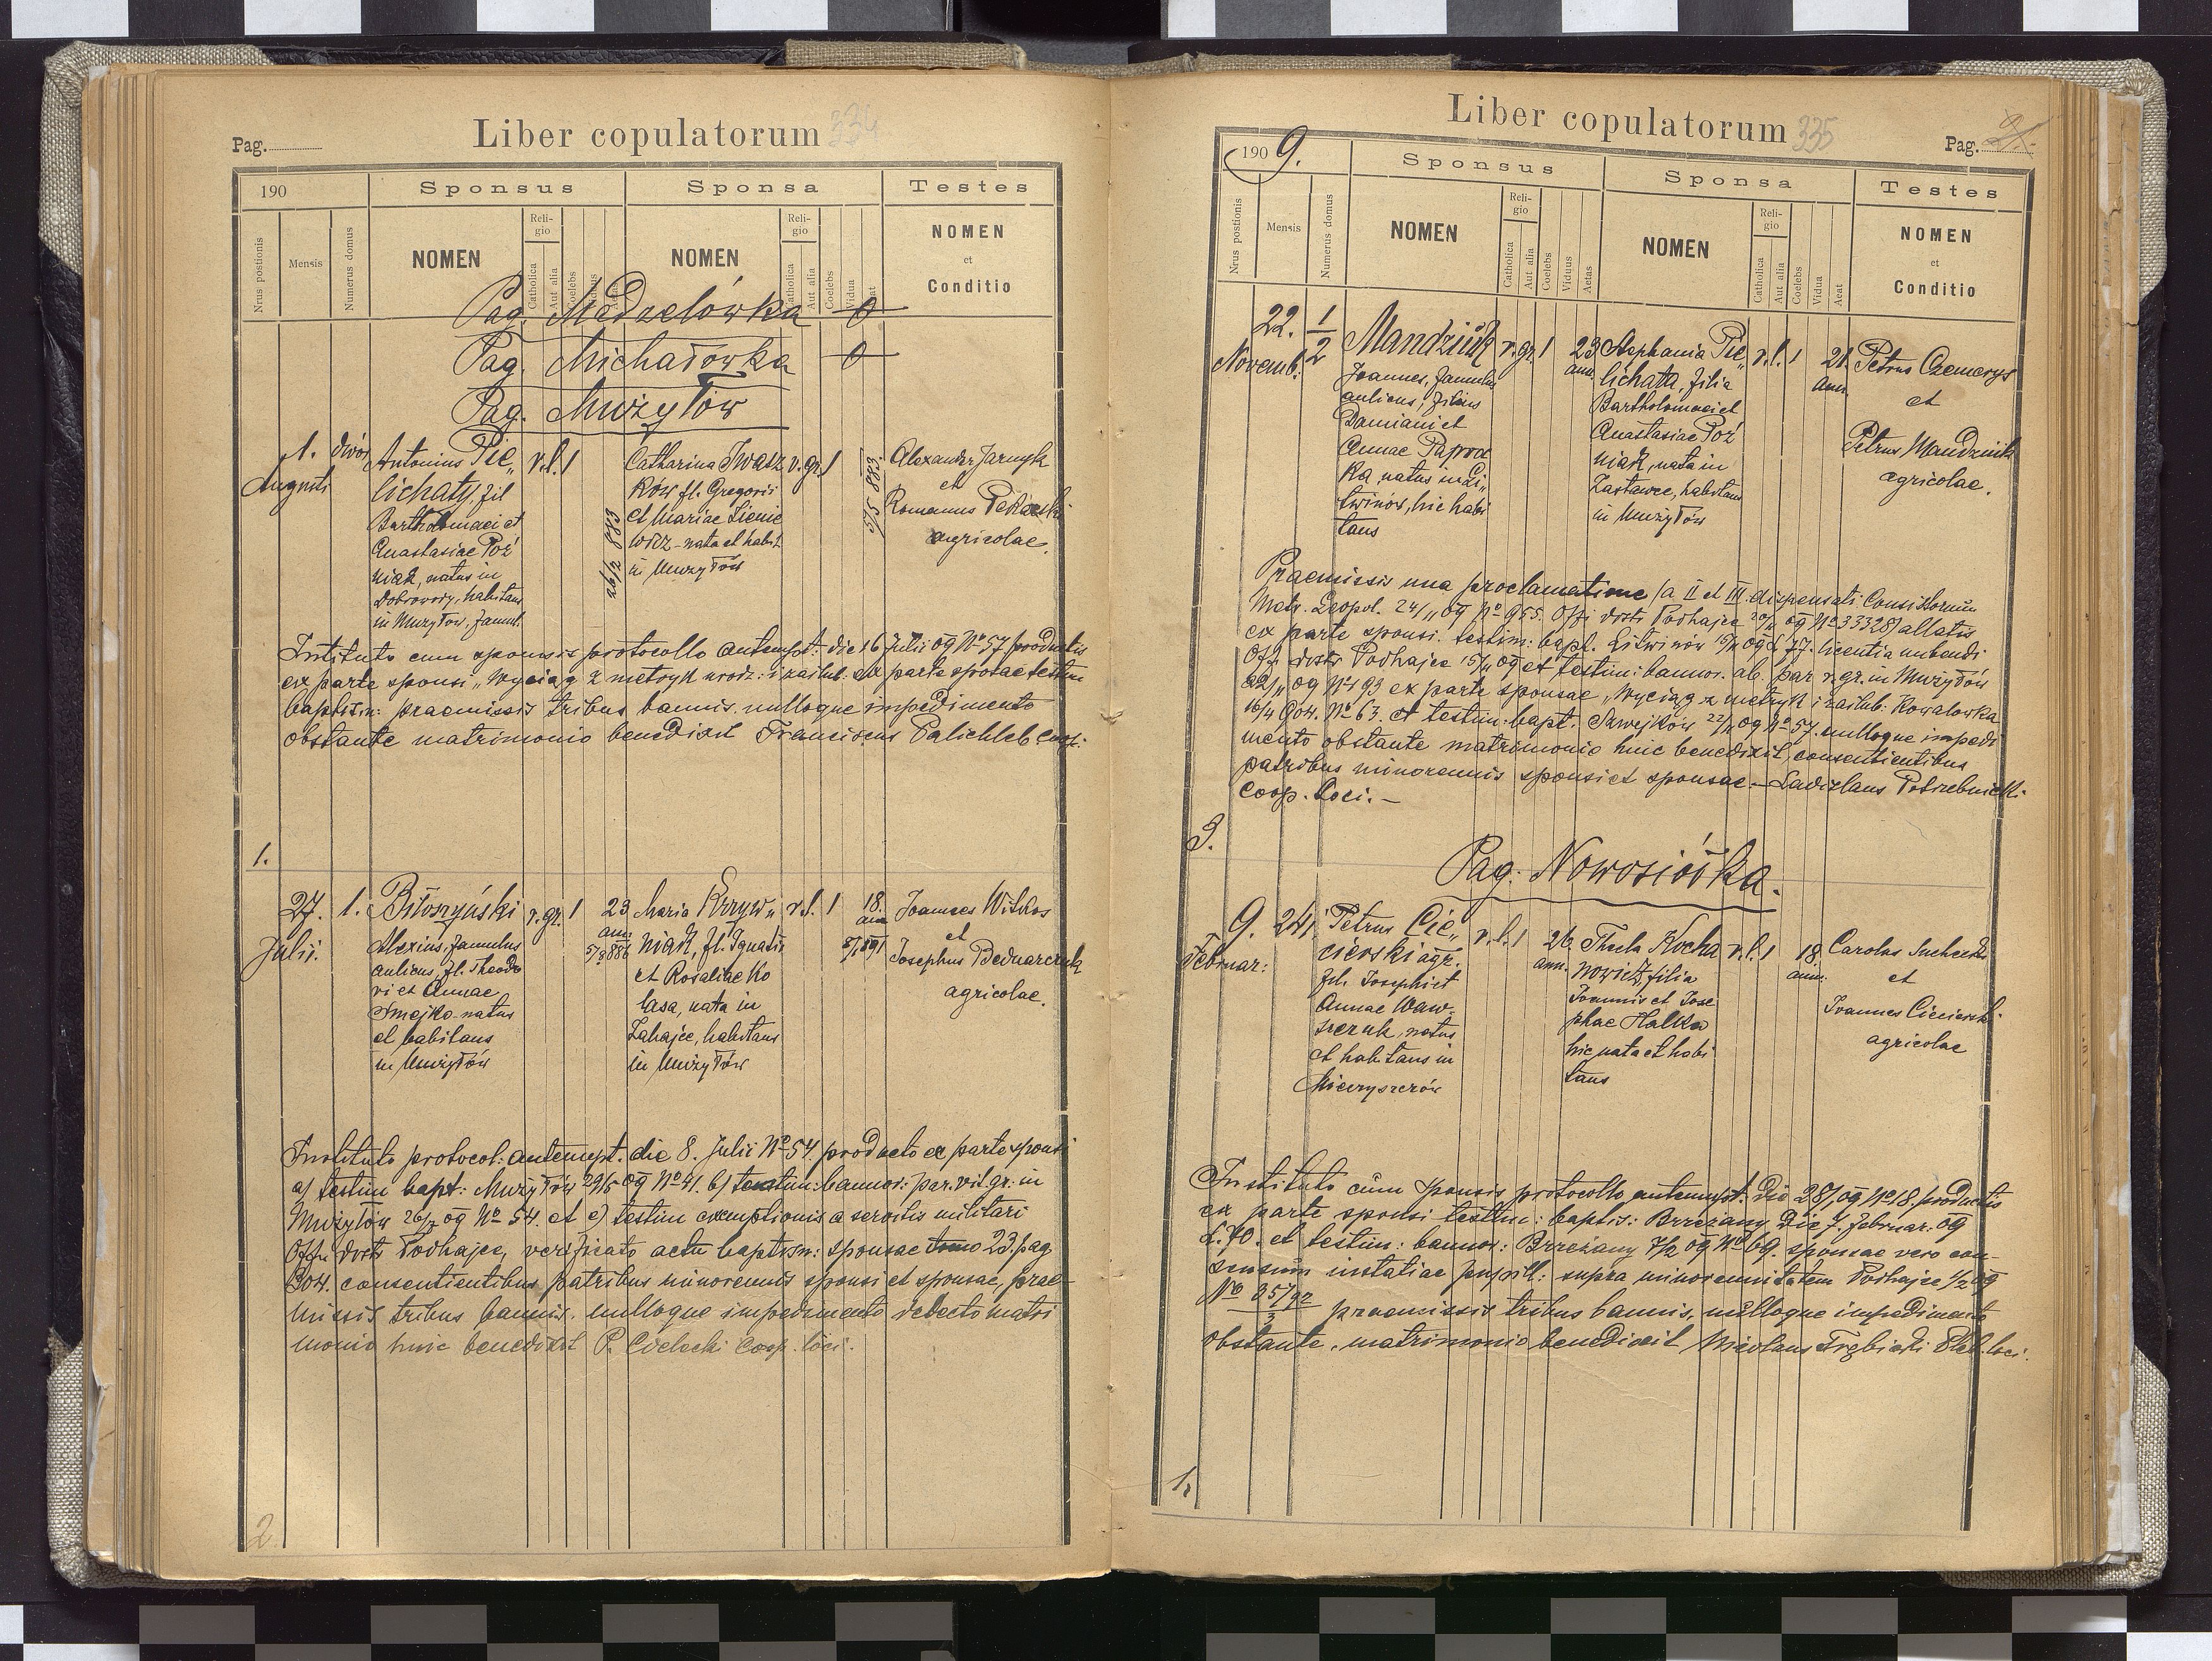 Pag.
Liber copulatorum 334
190
Sponsus
Sponsa
Testes
Nrus postionis
Mensis
Numerus domus
NOMEN
Religio
Catholica
Aut alia
Coelebs
NOMEN
Religio
Catholica
Aut alia
Coelebs
Vidua
NOMEN
et
Conditio
Pag. Madzelówka 0
Pag. Michałówka 0
Pag. Mużyłów
1. dwór Antonius Pie„ r.l. 1
Augusti
lichaty, fil
Bartholomaei et
Anastasiae Poź
niak, natus in
Dobrowody, habitans
in Mużyłów, famul.
26/2 883
Catharina Iwasz r.gr. 1
ków fl. Gregorii
et Mariae Sienie
wicz nata et habit
in Mużyłów
5/5 883
Alexander Jarnyk
et
Romanus Pekarski
agricolae.
Instituto cum sponsis protocollo antenupt: die 16 Julii 09 No 57 productis
ex parte sponsi „Wyciąg z metryk urodz: i zaślub: ex parte sponsae testim
baptism: praemissis tribus bannis nulloque impedimento
obstante matrimonio benedixit Franciscus Palichleb coop:
1.
27. 1. Biłoszyński r.gr. 1 23
Julii.
ann
5/3 886
Alexius, famulus
aulicus, fl. Theodo
ri et Annae
Smejko natus
et habitans
in Mużyłów
Maria Krzyw„ r.l. 1 18.
ann
niak, fl. Ignatii
et Rosaliae Ko
lasa, nata in
Zahajce, habitans
in Mużyłów
Joannes Witkos
et
Josephus Bednarczuk
agricolae.
Instituto protocol: antenupt. die 8. Julii No 54. producto ex parte sponsi
a) testim bapt: Mużyłów 29/6 09 No 41. b) testim: bannor: par. rit. gr. in
Mużyłów 26/7 09 No 54. et c) testim exemptionis a servitis militari
Offi dosts Podhajce, verificato actu baptism: sponsae tomo 23. pag
304. consentientibus patribus minorennis sponsi et sponsae, prae
missis tribus bannis, nulloque impedimento detecto matri
monio huic benedixit P. Cielecki coop. loci.
2
Liber copulatorum 335
Pag.
1909.
Sponsus
Sponsa
Testes
Nrus postionis
Mensis
Numerus domus
NOMEN
Religio
Catholica
Aut alia
Coelebs
Viduus
Aetas
NOMEN
Religio
Catholica
Aut alia
Coelebs
Vidua
Aeat
NOMEN
et
Conditio
22. 1/2 Mandziuk r.gr. 1 23
Novemb.
ann.
Joannes, famulus
aulicus, filius
Damiani et
Annae Paproc
ka, natus in Li„
twinów, hic habi
tans
Stephania Pie„ r.l. 1 21.
ann.
lichata, filia
Bartholomaei et
Anastasiae Poź
niak, nata in
Zastawce, habitans
in Mużyłów
Petrus Czemerys
et
Petrus Mandziuk
agricolae.
Praemissis una proclamatione (a II et III. dispensati Consistorium
Metr. Leopol. 24/11 09 No 955. Offi dosts Podhajce 20/11 09 No 33328) allatis
ex parte sponsi. testim: bapt. Litwinów 15/11 09 L 77. licentia nubendi
Offi dosts Podhajce 15/11 09 et testim: bannor. ab. par r.gr. in Mużyłów
22/11 09 No 93 ex parte sponsae „Wyciąg z metryk i zaślub: Kowalówka
16/4 904. No 63. et testim: bapt. Szwejków 22/11 09 No 57. nulloque impedi
mento obstante matrimonio huic benedixit, consentientibus
patribus minorennis sponsi et sponsae.— Ladislaus Potrzebnicki
coop. loci.—
3.
Pag. Nowosiółka.
9. 241 Petrus Cie„ r.l. 1 26
Februar:
ann.
cierski agr.
fil. Josephi et
Annae Waw-
szczuk, natus
et habitans in
Mieczyszczów
Thecla Kocha r.l. 1 18
ann:
nowicz, filia
Joannis et Jose
phae Halka
hic nata et habi
tans
Carolus Suchecki
et
Joannes Ciecierski
agricolae
Instituto cum sponsis protocollo antenupt: die 28/1 09 No 18. productis
ex parte sponsi testim: baptis: Brzeżany die 7. februar. 09
L. 70. et testim: bannor: Brzeżany 7/2 09 No 69. sponsae vero con-
sensum instatiae pupill: supra minorennitatem Podhajce 1/2 09
No 95/92/3 praemissis tribus bannis, nulloque impedimento
obstante, matrimonio benedixit Nicolaus Trębicki Pleb. loci.
1.